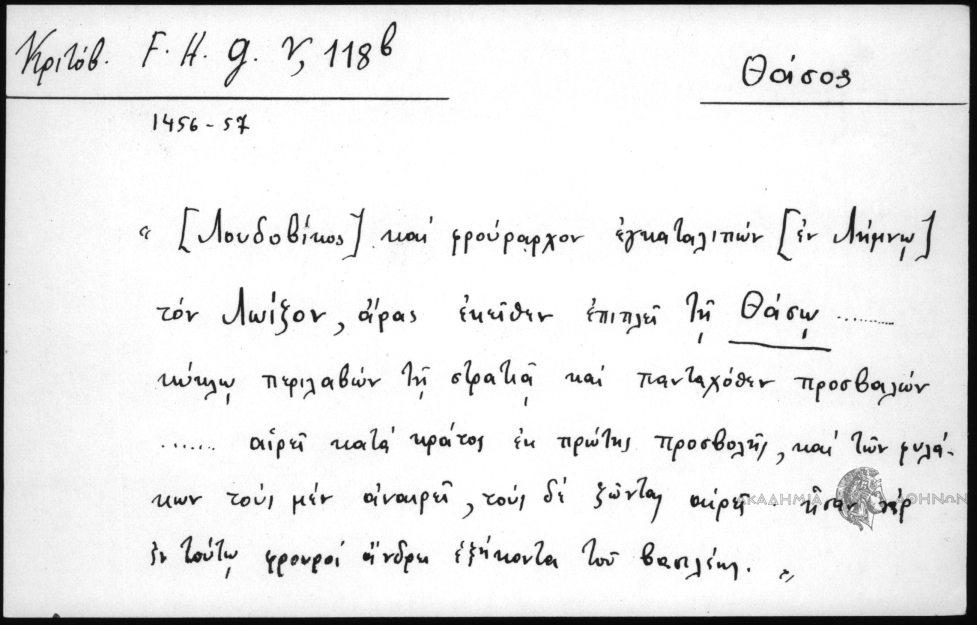 Κριτόβ. F. H. g. V, 118b
Θάσος
1456-57
« [Λουδοβίκος] καί φρούραρχον ἐγκαταλιπών [ἐν Λήμνῳ]
τόν Λωίζον, ἄρας ἐκεῖθεν ἐπιπλεῖ τῇ Θάσῳ ........
κύκλῳ περιλαβών τῇ στρατιᾷ καί πανταχόθεν προσβαλών
...... αἱρεῖ κατά κράτος ἐκ πρώτης προσβολῆς, καί τῶν φυλά-
κων τούς μέν ἀναιρεῖ, τούς δέ ζῶντας αἱρεῖ ἦσαν γάρ
ἐν τούτῳ φρουροί ἄνδρες ἑξήκοντα τοῦ βασιλέως. »
ΑΚΑΔΗΜΙΑ ΑΘΗΝΩΝ